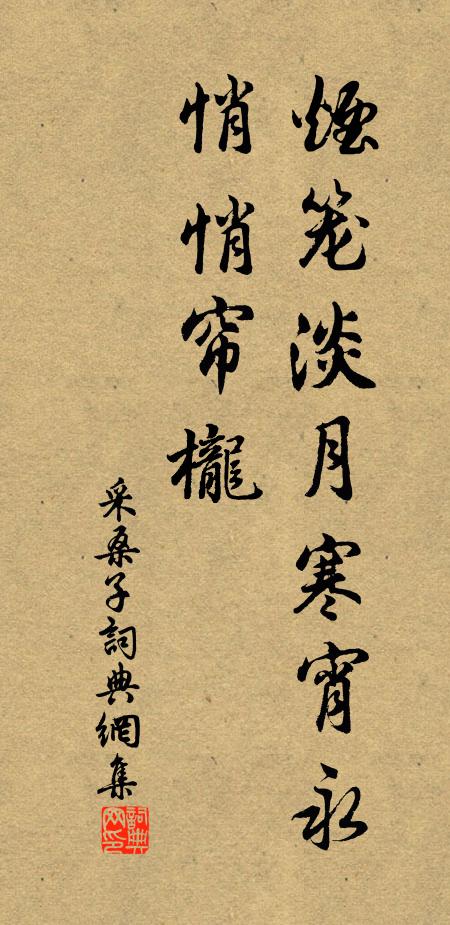 煙笼淡月寒宵永
悄悄帘櫳
采桑子詞典網集
詞典网印